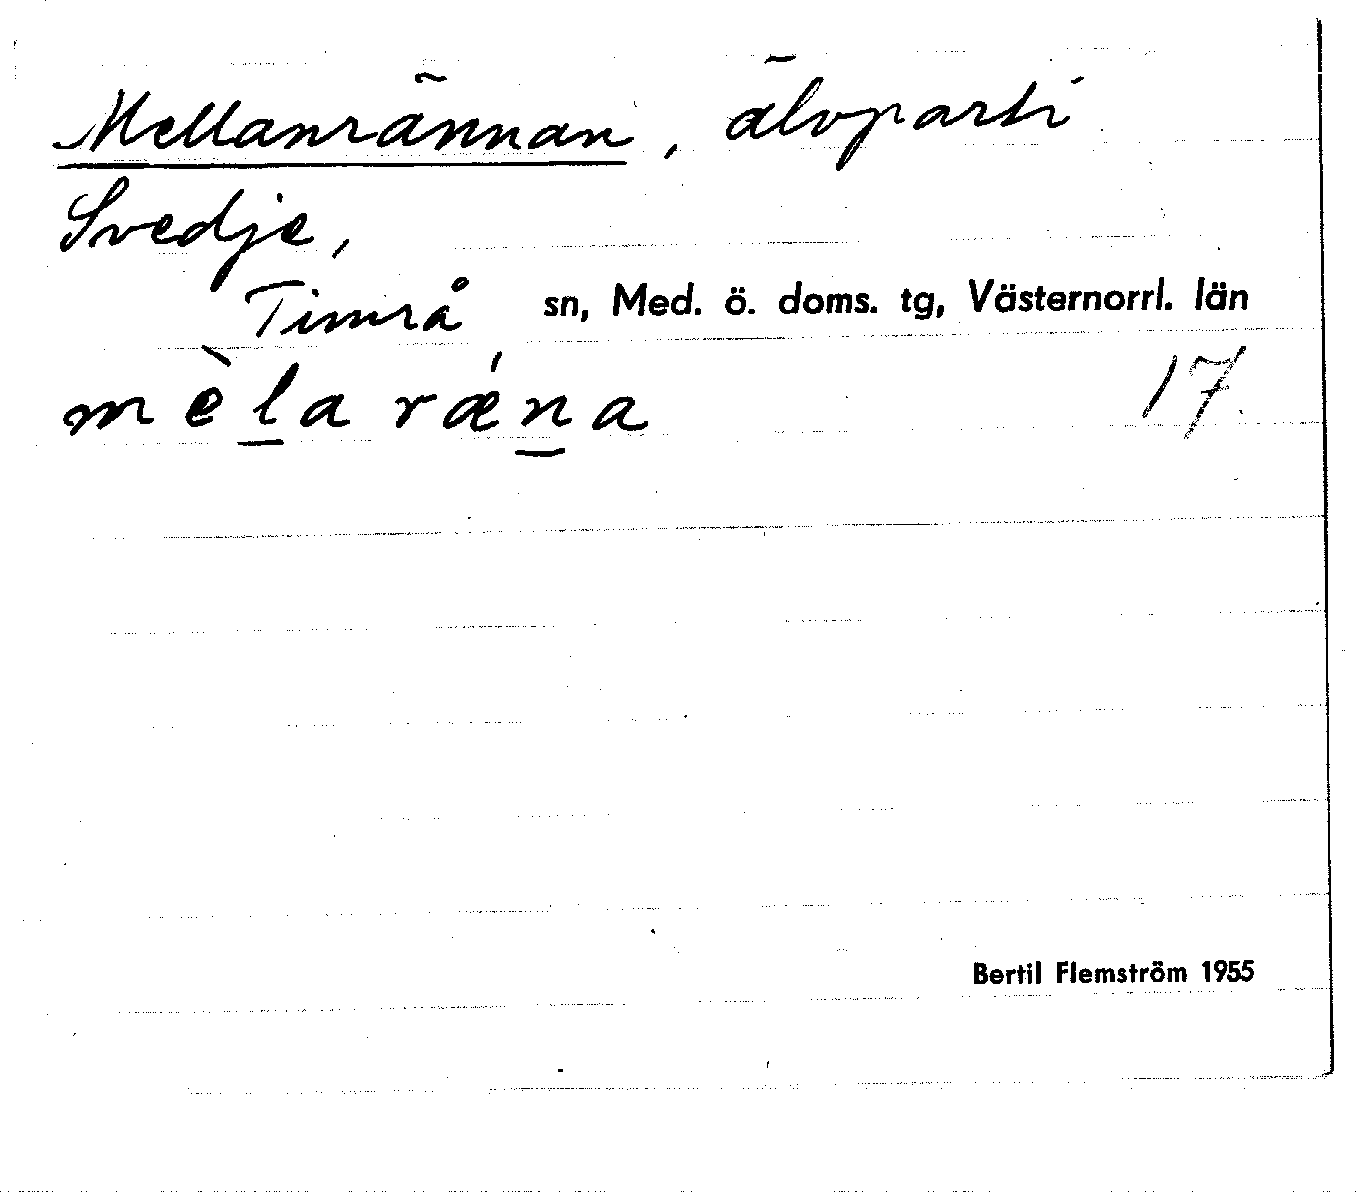 Mellanrännan, älvparti
Svedje,
Timrå sn, Med. ö. doms. tg, Västernorrl. län
mèla rǽna 17
Bertil Flemström 1955